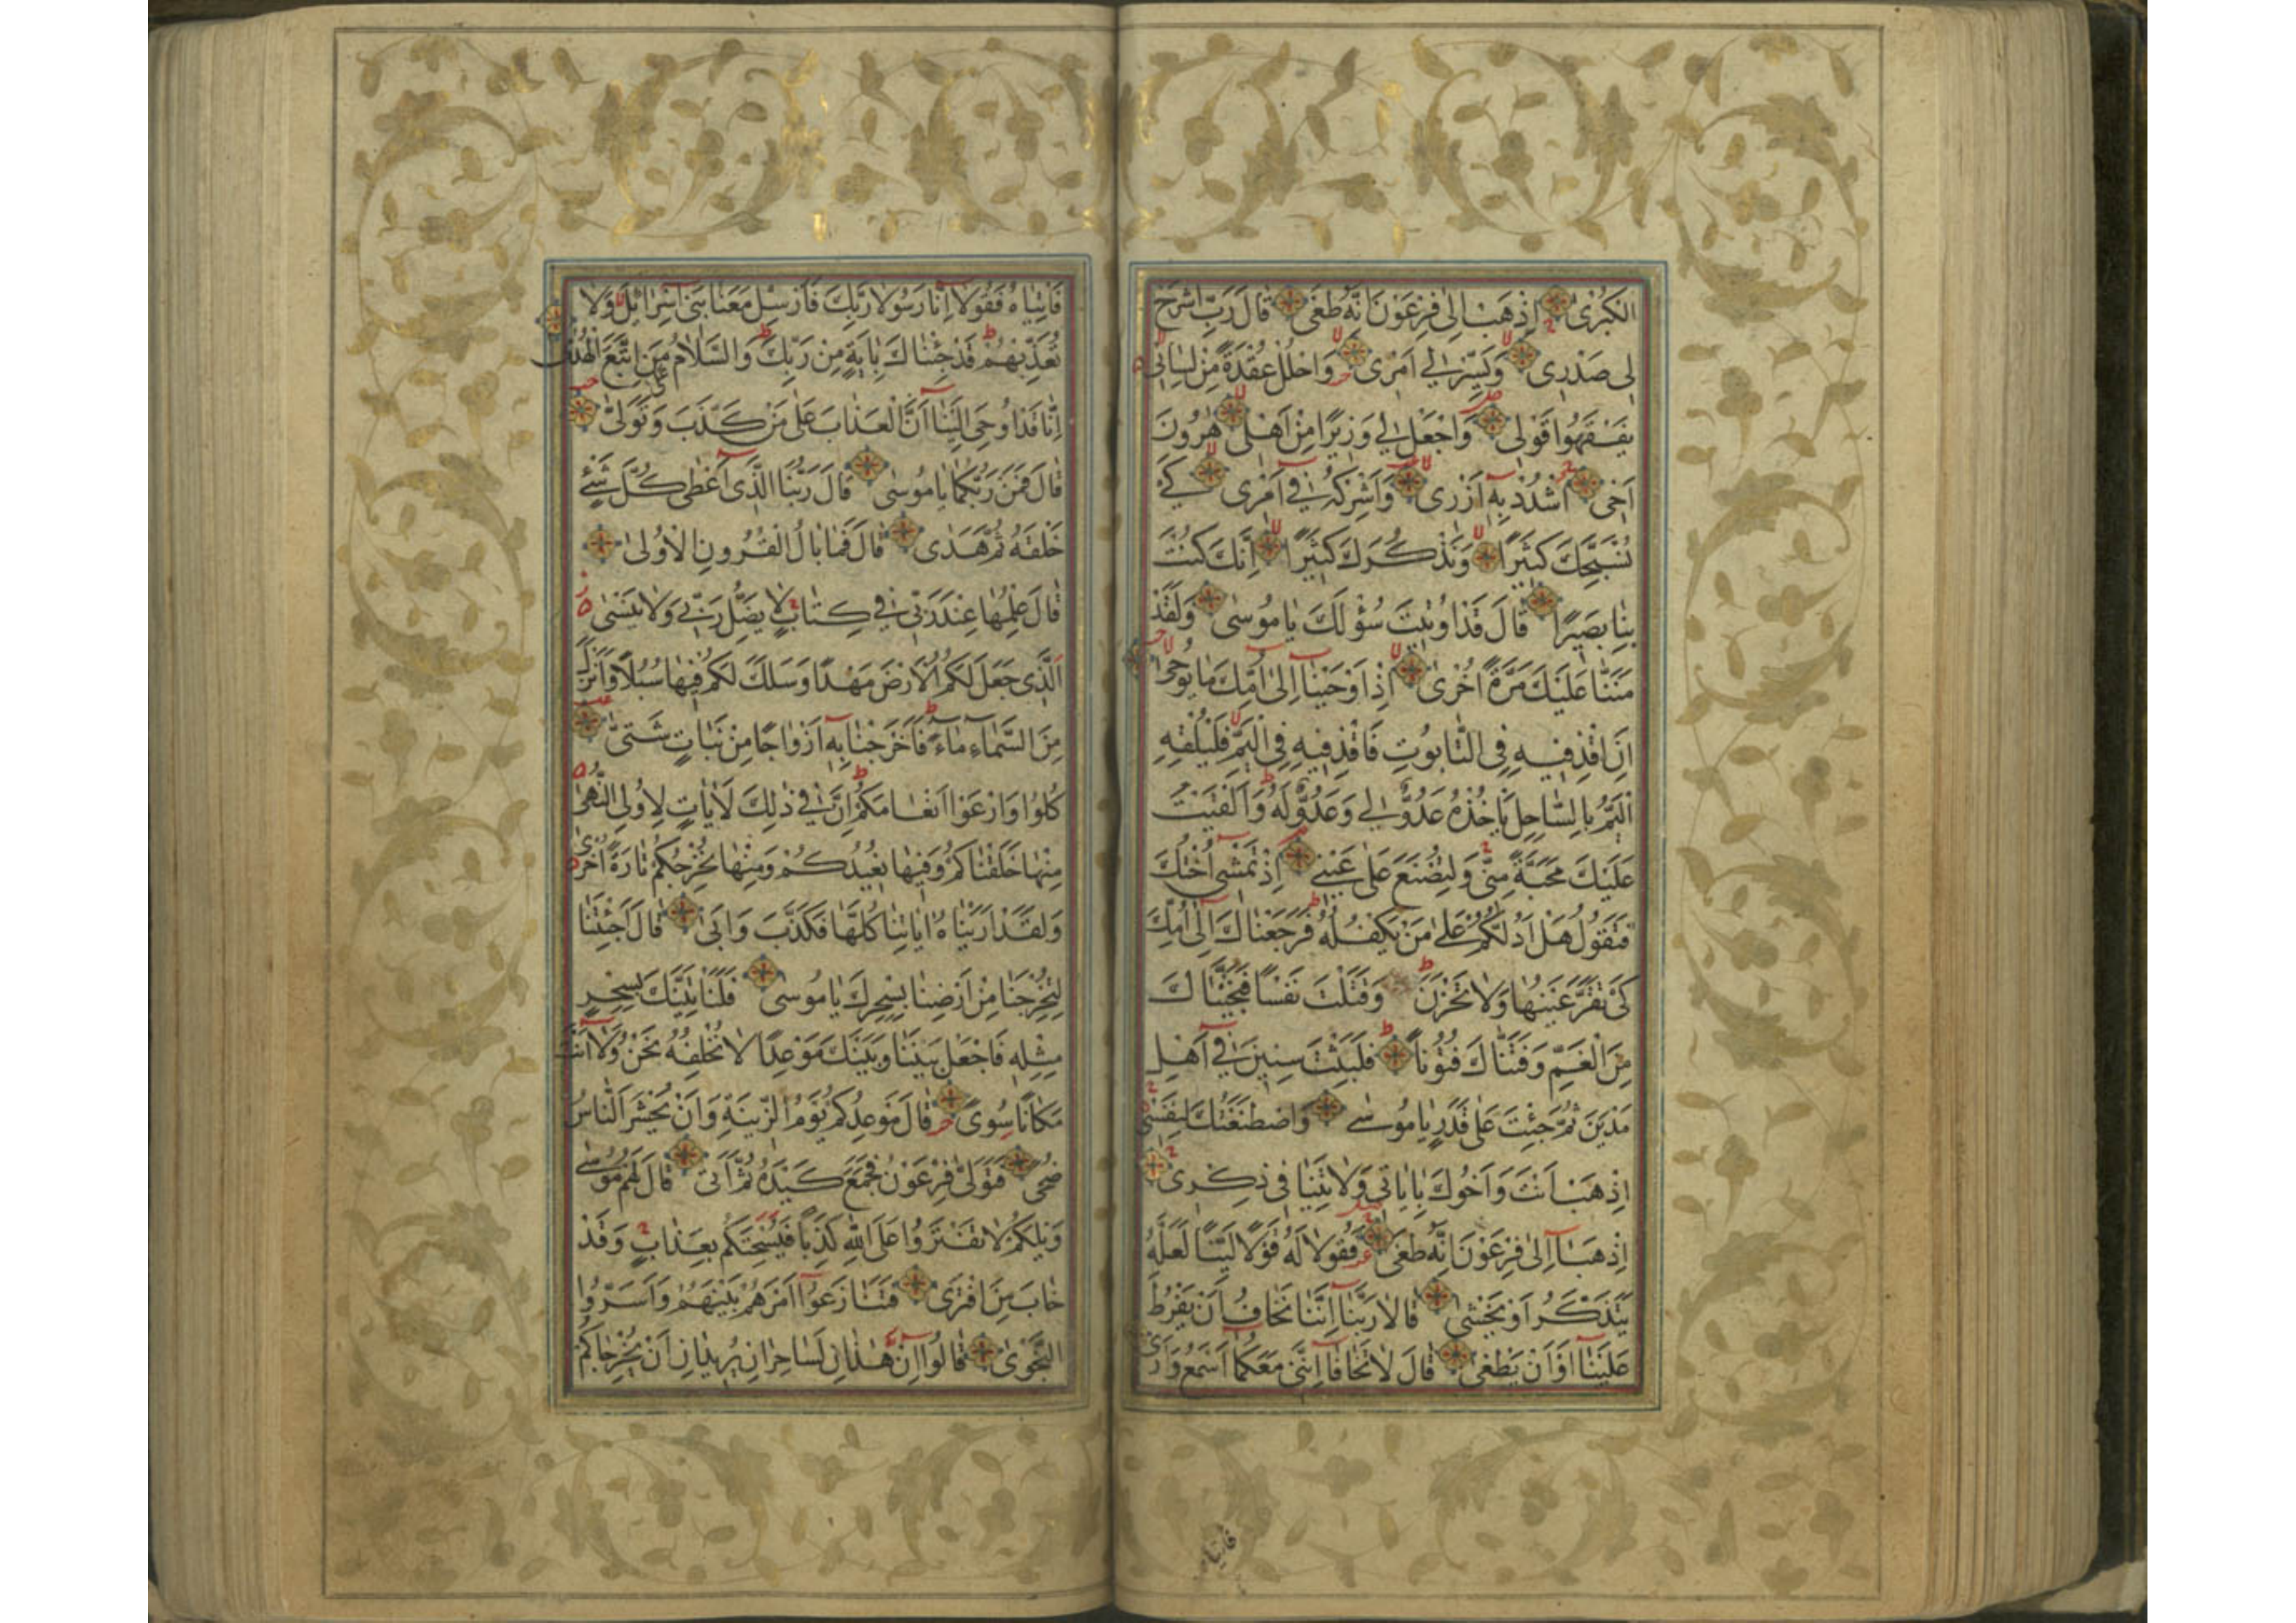 الكُبْرٰى اِذْهَبْ اِلٰى فِرْعَوْنَ اِنَّهُ طَغٰى قَالَ رَبِّ اشْرَحْ
لٖى صَدْرٖى وَيَسِّرْ لٖى اَمْرٖى وَاحْلُلْ عُقْدَةً مِنْ لِسَانٖى
يَفْقَهُوا قَوْلٖى وَاجْعَلْ لٖى وَزٖيرًا مِنْ اَهْلٖى هٰرُونَ
اَخٖى اُشْدُدْ بِهٖ اَزْرٖى وَاَشْرِكْهُ فٖى اَمْرٖى كَىْ
نُسَبِّحَكَ كَثٖيرًا وَنَذْكُرَكَ كَثٖيرًا اِنَّكَ كُنْتَ
بِنَا بَصٖيرًا قَالَ قَدْ اُوتٖيتَ سُؤْلَكَ يَا مُوسٰى وَلَقَدْ
مَنَنَّا عَلَيْكَ مَرَّةً اُخْرٰى اِذْ اَوْحَيْنَا اِلٰى اُمِّكَ مَا يُوحٰى
اَنِ اقْذِفٖيهِ فِى التَّابُوتِ فَاقْذِفٖيهِ فِى الْيَمِّ فَلْيُلْقِهِ
الْيَمُّ بِالسَّاحِلِ يَاْخُذْهُ عَدُوٌّ لٖى وَعَدُوٌّ لَهُ وَاَلْقَيْتُ
عَلَيْكَ مَحَبَّةً مِنّٖى وَلِتُصْنَعَ عَلٰى عَيْنٖى اِذْ تَمْشٖى اُخْتُكَ
فَتَقُولُ هَلْ اَدُلُّكُمْ عَلٰى مَنْ يَكْفُلُهُ فَرَجَعْنَاكَ اِلٰى اُمِّكَ
كَىْ تَقَرَّ عَيْنُهَا وَلَا تَحْزَنَ وَقَتَلْتَ نَفْسًا فَنَجَّيْنَاكَ
مِنَ الْغَمِّ وَفَتَنَّاكَ فُتُونًا فَلَبِثْتَ سِنٖينَ فٖى اَهْلِ
مَدْيَنَ ثُمَّ جِئْتَ عَلٰى قَدَرٍ يَا مُوسٰى وَاصْطَنَعْتُكَ لِنَفْسٖى
اِذْهَبْ اَنْتَ وَاَخُوكَ بِاٰيَاتٖى وَلَا تَنِيَا فٖى ذِكْرٖى
اِذْهَبَا اِلٰى فِرْعَوْنَ اِنَّهُ طَغٰى فَقُولَا لَهُ قَوْلًا لَيِّنًا لَعَلَّهُ
يَتَذَكَّرُ اَوْ يَخْشٰى قَالَا رَبَّنَا اِنَّنَا نَخَافُ اَنْ يَفْرُطَ
عَلَيْنَا اَوْ اَنْ يَطْغٰى قَالَ لَا تَخَافَا اِنَّنٖى مَعَكُمَا اَسْمَعُ وَاَرٰى
فَاْتِيَاهُ
فَاْتِيَاهُ فَقُولَا اِنَّا رَسُولَا رَبِّكَ فَاَرْسِلْ مَعَنَا بَنٖى اِسْرَائٖلَ وَلَا
تُعَذِّبْهُمْ قَدْ جِئْنَاكَ بِاٰيَةٍ مِنْ رَبِّكَ وَالسَّلَامُ عَلٰى مَنِ اتَّبَعَ الْهُدٰى
اِنَّا قَدْ اُوحِىَ اِلَيْنَا اَنَّ الْعَذَابَ عَلٰى مَنْ كَذَّبَ وَتَوَلّٰى
قَالَ فَمَنْ رَبُّكُمَا يَا مُوسٰى قَالَ رَبُّنَا الَّذٖى اَعْطٰى كُلَّ شَىْءٍ
خَلْقَهُ ثُمَّ هَدٰى قَالَ فَمَا بَالُ الْقُرُونِ الْاُولٰى
قَالَ عِلْمُهَا عِنْدَ رَبّٖى فٖى كِتَابٍ لَا يَضِلُّ رَبّٖى وَلَا يَنْسٰى
اَلَّذٖى جَعَلَ لَكُمُ الْاَرْضَ مَهْدًا وَسَلَكَ لَكُمْ فٖيهَا سُبُلًا وَاَنْزَلَ
مِنَ السَّمَاءِ مَاءً فَاَخْرَجْنَا بِهٖ اَزْوَاجًا مِنْ نَبَاتٍ شَتّٰى
كُلُوا وَارْعَوْا اَنْعَامَكُمْ اِنَّ فٖى ذٰلِكَ لَاٰيَاتٍ لِاُولِى النُّهٰى
مِنْهَا خَلَقْنَاكُمْ وَفٖيهَا نُعٖيدُكُمْ وَمِنْهَا نُخْرِجُكُمْ تَارَةً اُخْرٰى
وَلَقَدْ اَرَيْنَاهُ اٰيَاتِنَا كُلَّهَا فَكَذَّبَ وَاَبٰى قَالَ اَجِئْتَنَا
لِتُخْرِجَنَا مِنْ اَرْضِنَا بِسِحْرِكَ يَا مُوسٰى فَلَنَاْتِيَنَّكَ بِسِحْرٍ
مِثْلِهٖ فَاجْعَلْ بَيْنَنَا وَبَيْنَكَ مَوْعِدًا لَا نُخْلِفُهُ نَحْنُ وَلَا اَنْتَ
مَكَانًا سُوًى قَالَ مَوْعِدُكُمْ يَوْمُ الزّٖينَةِ وَاَنْ يُحْشَرَ النَّاسُ
ضُحًى فَتَوَلّٰى فِرْعَوْنُ فَجَمَعَ كَيْدَهُ ثُمَّ اَتٰى قَالَ لَهُمْ مُوسٰى
وَيْلَكُمْ لَا تَفْتَرُوا عَلَى اللّٰهِ كَذِبًا فَيُسْحِتَكُمْ بِعَذَابٍ وَقَدْ
خَابَ مَنِ افْتَرٰى فَتَنَازَعُوا اَمْرَهُمْ بَيْنَهُمْ وَاَسَرُّوا
النَّجْوٰى قَالُوا اِنْ هٰذَانِ لَسَاحِرَانِ يُرٖيدَانِ اَنْ يُخْرِجَاكُمْ